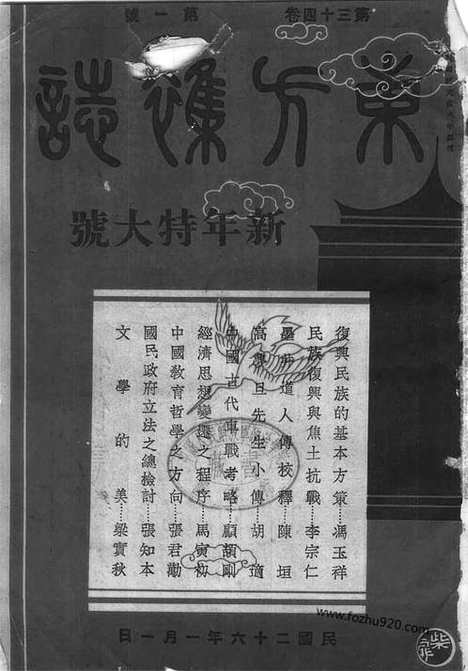 第三十四卷 第一號
東方雜誌
新年特大號
復興民族的基本方策……馮玉祥
民族復興與焦土抗戰……李宗仁
墨井道人傳校釋……陳垣
高夢旦先生小傳……胡適
中國古代車戰考略……顧頡剛
經濟思想變遷之程序……馬寅初
中國教育哲學之方向……張君勱
國民政府立法之總檢討……張知本
文學的美……梁實秋
民國二十六年一月一日
www.fozhu920.com